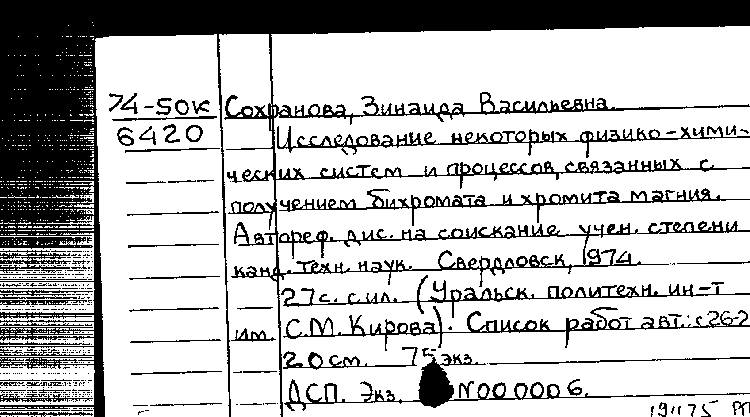 74-50к Сохранова, Зинаида Васильевна.
6420 Исследование некоторых физико-хими-
ческих систем и процессов, связанных с
получением бихромата и хромита магния.
Автореф. дис. на соискание учен. степени
канд. техн. наук. Свердловск, 1974.
27 с. с ил. (Уральск. политехн. ин-т
им. С.М. Кирова). Список работ авт.: с 26-2
20 см. 75 экз.
ДСП. Экз. N000006.